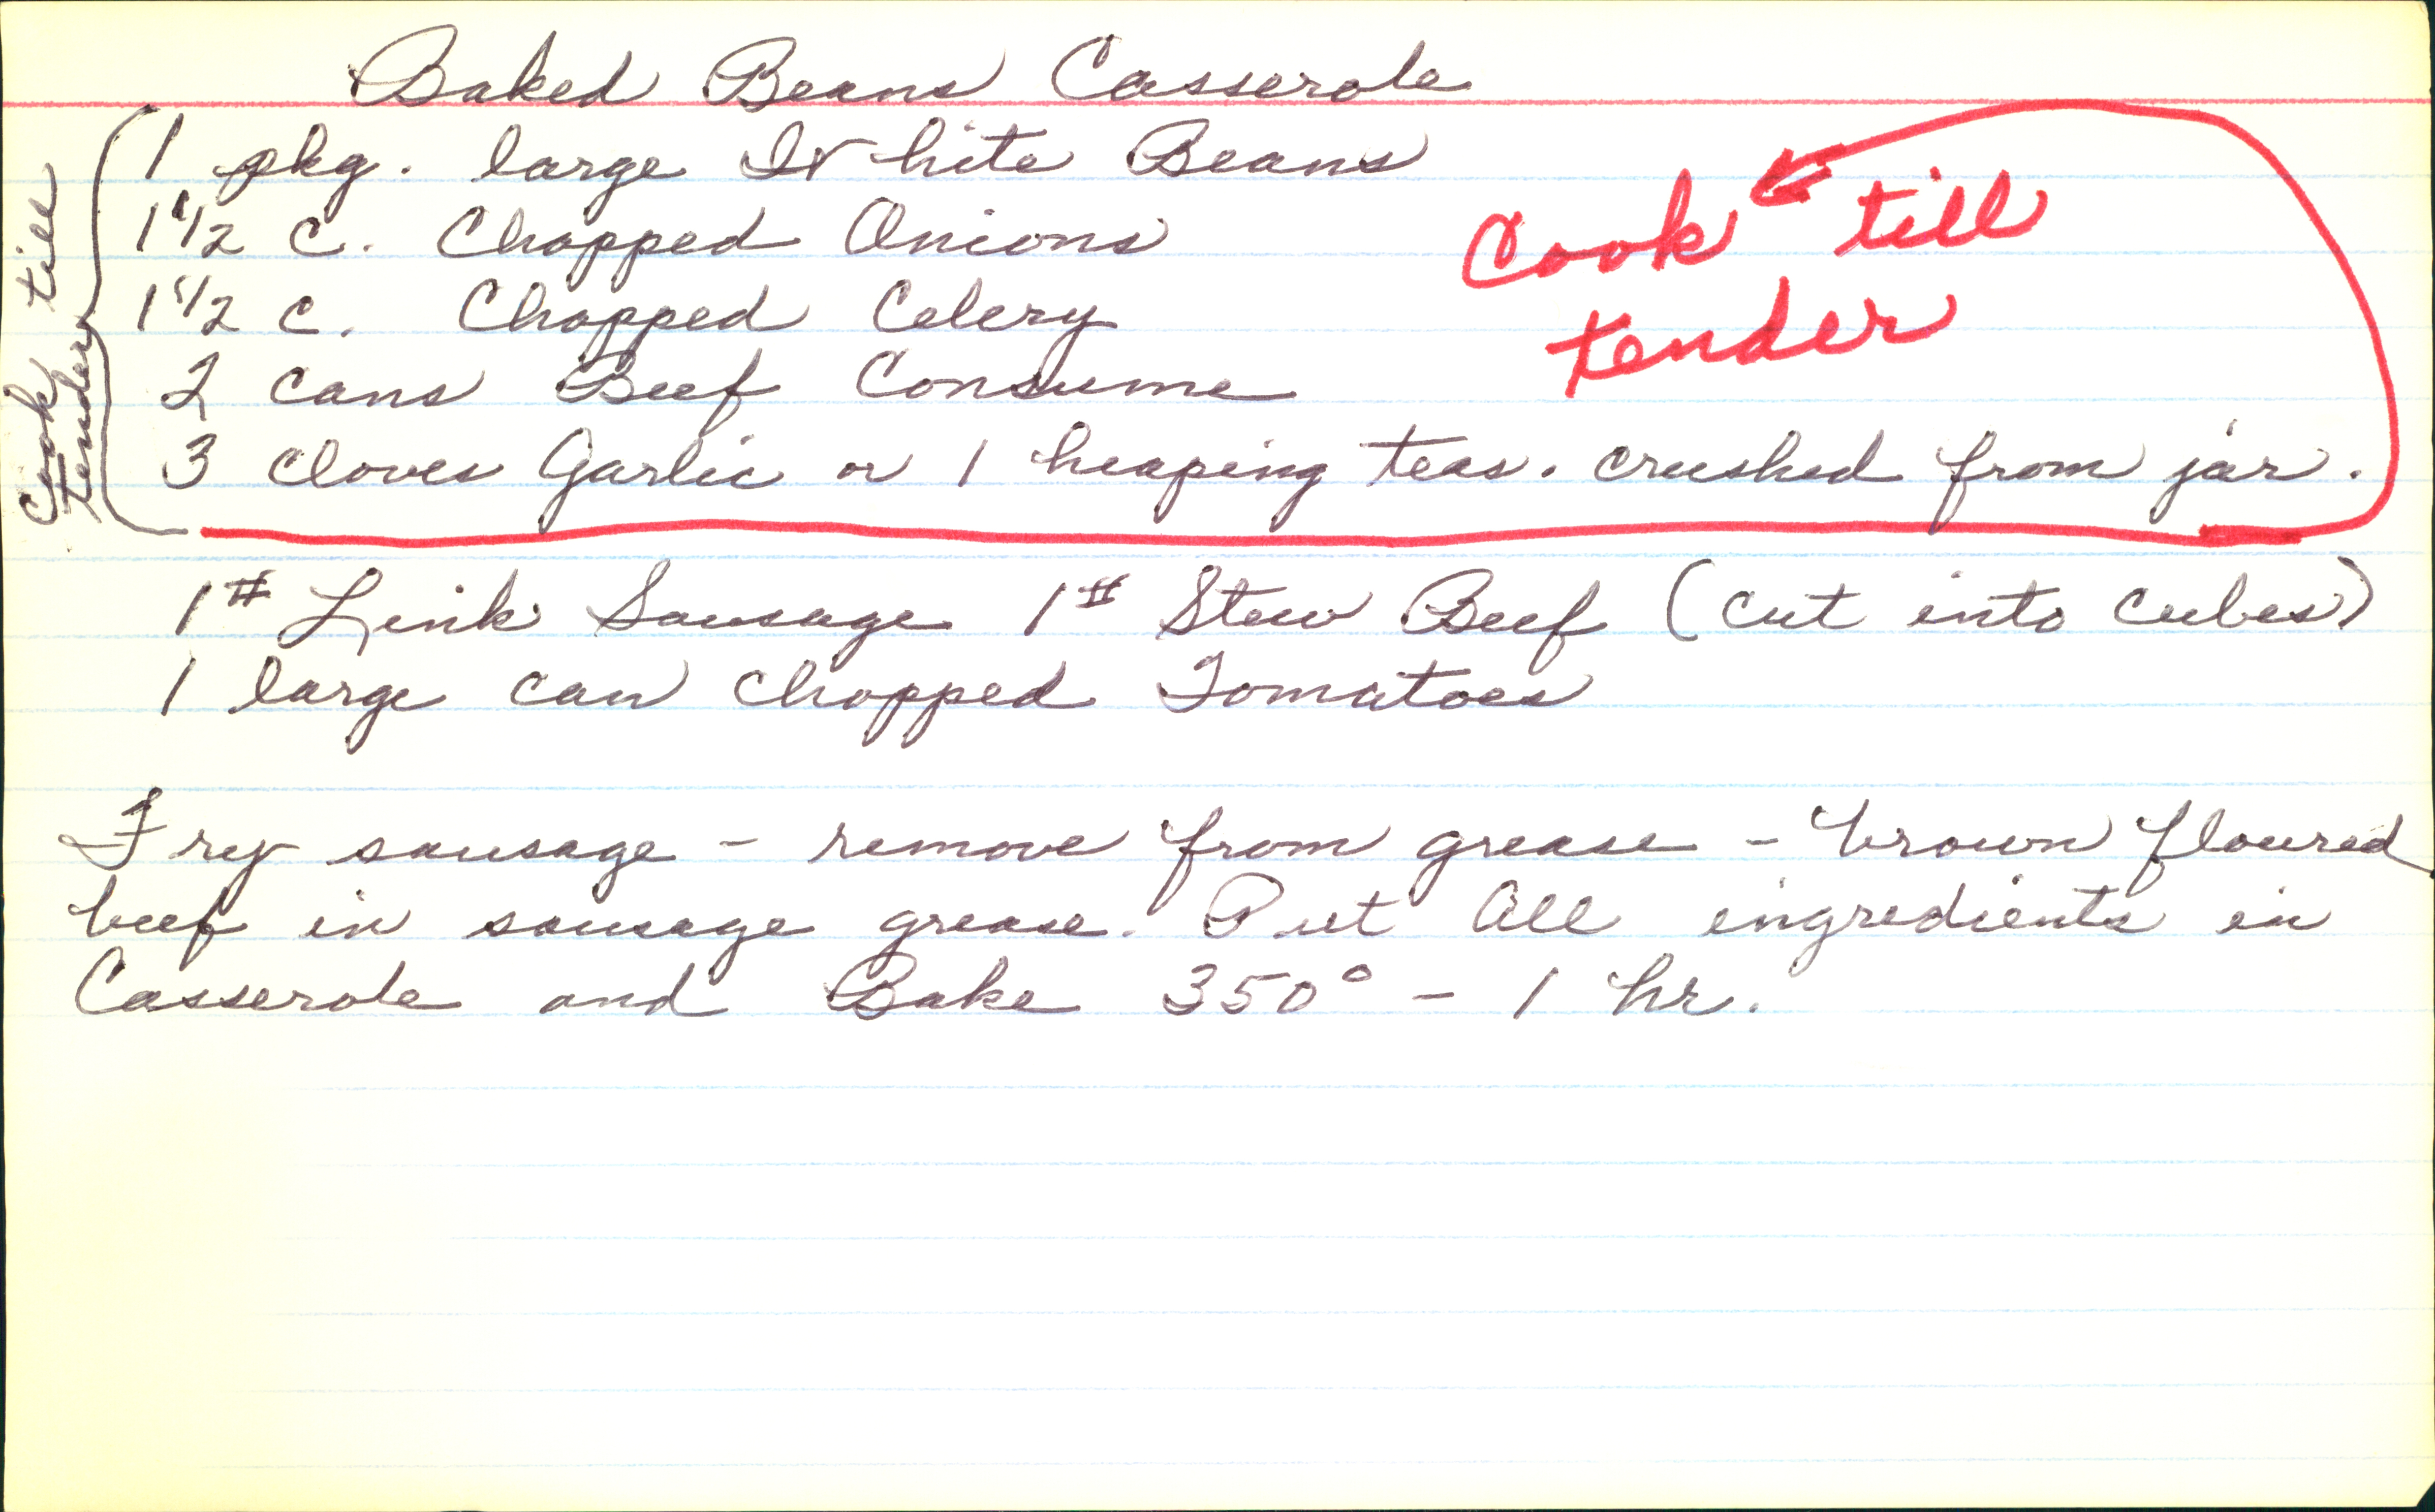 Baked Beans Casserole
1 pkg. large White Beans
1 1/2 c. Chopped Onions
1 1/2 c. Chopped Celery
2 cans Beef Consume
3 cloves Garlic or 1 heaping teas. crushed from jar.
Cook till
tender
Cook till
tender
1# Link Sausage 1# Stew Beef (cut into cubes)
1 large can chopped Tomatoes
Fry sausage - remove from grease - brown floured
beef in sausage grease. Put All ingredients in
Casserole and Bake 350° - 1 hr.